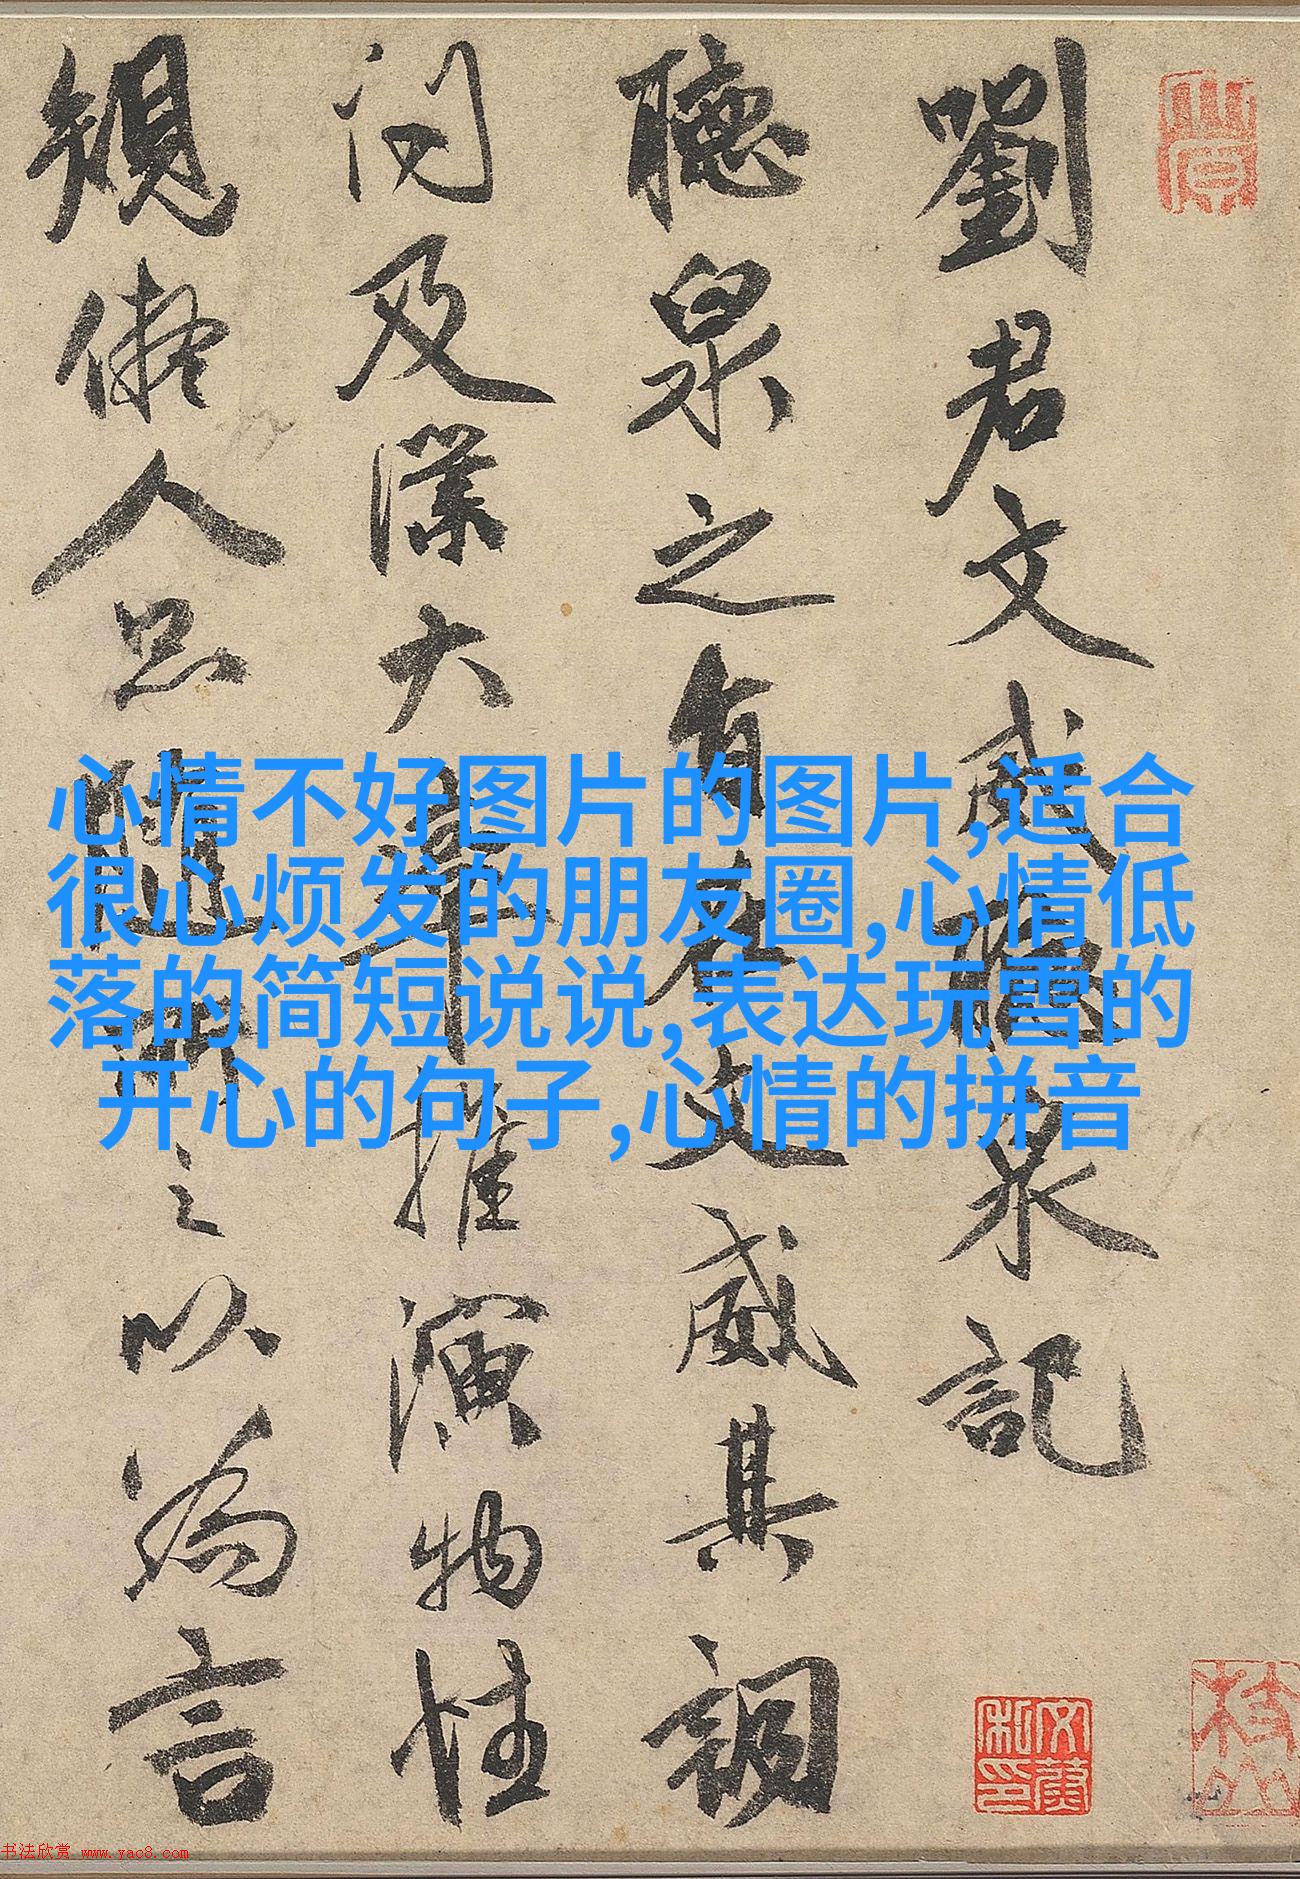 劉君文威聽泉記
聽泉之有
文威其詞
问及深大章
推演物性
規儗人品
之以為言
心情不好图片的图片,适合
很心烦发的朋友圈,心情低
落的简短说说,表达玩雪的
开心的句子,心情的拼音
书法欣赏 www.yac8.com